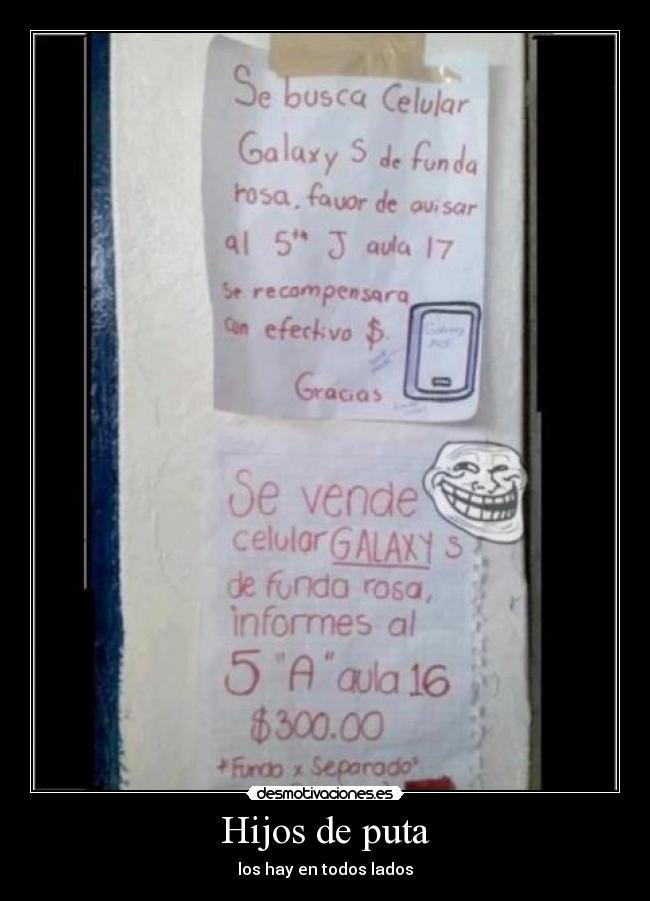 Se busca Celular
Galaxy S de funda
rosa, favor de avisar
al 5to J aula 17
se recompensara
con efectivo $.
Galaxy
ACE
Gracias
Se vende
celular GALAXY S
de funda rosa,
informes al
5 "A" aula 16
$300.00
*Funda x Separado*
desmotivaciones.es
Hijos de puta
los hay en todos lados